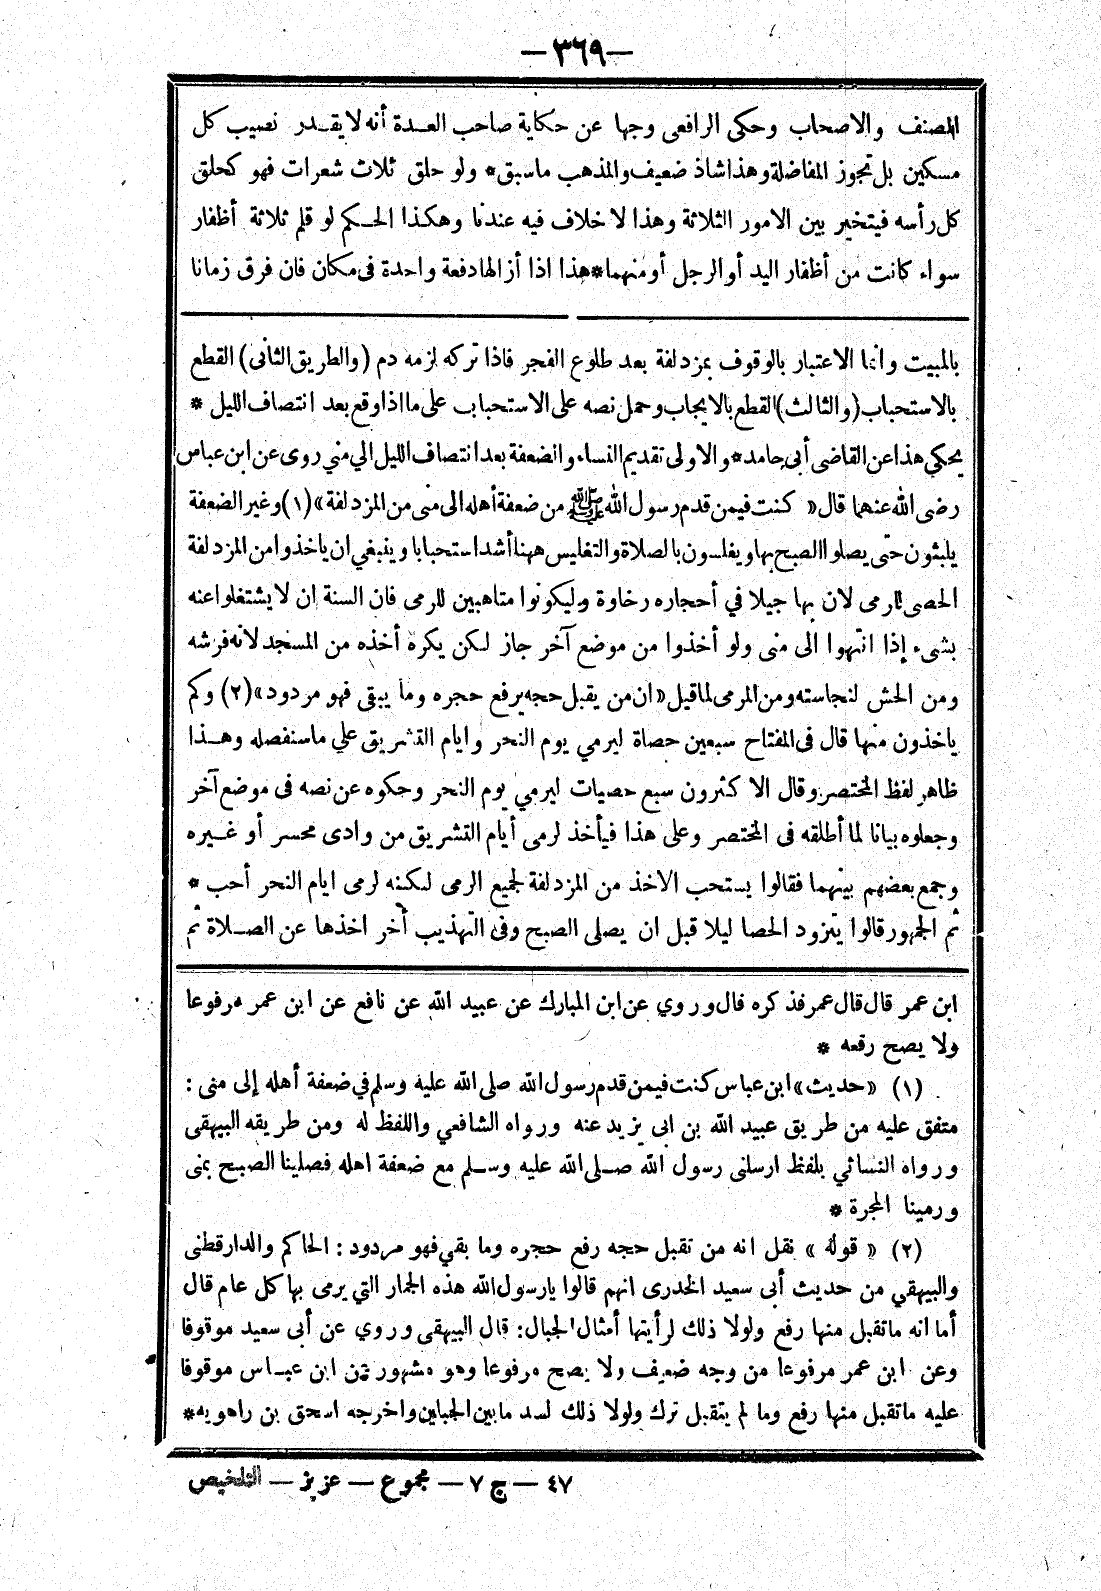 —٣٦٩—
المصنف والاصحاب وحكى الرافعى وجها عن حكاية صاحب العـدة أنه لا يقـدر نصيب كل
مسكين بل تجوز المفاضلة وهذا شاذ ضعيف والمذهب ما سبق* ولو حلق ثلاث شعرات فهو كحلق
كل رأسه فيتخير بين الامور الثلاثة وهذا لا خلاف فيه عندنا وهكذا الحـكم لو قلم ثلاثة أظفار
سواء كانت من أظفار اليد أو الرجل أو منهما* هذا اذا أزالها دفعة واحدة فى مكان فان فرق زمانا
بالمبيت وانما الاعتبار بالوقوف بمزدلفة بعد طلوع الفجر فاذا تركه لزمه دم (والطريق الثانى) القطع
بالاستحباب (والثالث) القطع بالايجاب وحمل نصه على الاستحباب على ما اذا وقع بعد انتصاف الليل *
يحكي هذا عن القاضى أبي حامد* والاولى تقديم النساء والضعفة بعد انتصاف الليل الي مني روى عن ابن عباس
رضى الله عنهما قال « كنت فيمن قدم رسول الله ﷺ من ضعفة أهله الى منى من المزدلفة » (١) وغير الضعفة
يلبثون حتى يصلوا الصبح بها ويغلسون بالصلاة والتغليس ههنا أشد استحبابا وينبغي ان ياخذوا من المزدلفة
الحصى للرمى لان بها جبلا في أحجاره رخاوة وليكونوا متاهبين للرمى فان السنة ان لا يشتغلوا عنه
بشىء إذا انتهوا الى منى ولو أخذوا من موضع آخر جاز لـكن يكره أخذه من المسجد لانه فرشه
ومن الحش لنجاسته ومن المرمى لما قيل « ان من يقبل حجه يرفع حجره وما يبقى فهو مردود» (٢) وكم
ياخذون منها قال فى المفتاح سبعين حصاة ليرمي يوم النحر وايام التشريق علي ما سنفصله وهـذا
ظاهر لفظ المختصر وقال الا كثرون سبع حصيات ليرمي يوم النحر وحكوه عن نصه فى موضع آخر
وجعلوه بيانا لما أطلقه فى المختصر وعلى هذا فيأخذ لرمى أيام التشريق من وادى محسر أو غـيره
وجمع بعضهم بينهما فقالوا يستحب الاخذ من المزدلفة لجميع الرمى لـكنه لرمى ايام النحر أحب *
ثم الجمهور قالوا يتزود الحصا ليلا قبل ان يصلى الصبح وفى التهذيب أخر اخذها عن الصـلاة ثم
ابن عمر قال قال عمر فذ كره قال وروي عن ابن المبارك عن عبيد الله عن نافع عن ابن عمر مرفوعا
ولا يصح رفعه *
(١) «حديث» ابن عباس كنت فيمن قدم رسول الله صلى الله عليه وسلم في ضعفة أهله إلى منى :
متفق عليه من طريق عبيد الله بن ابى يزيد عنه ورواه الشافعي واللفظ له ومن طريقه البيهقى
ورواه النسائي بلفظ ارسلنى رسول الله صـلى الله عليه وسـلم مع ضعفة اهله فصلينا الصبح بمنى
ورمينا الجمرة *
(٢) « قوله » نقل انه من تقبل حجه رفع حجره وما بقي فهو مردود : الحاكم والدارقطنى
والبيهقي من حديث أبى سعيد الخدرى انهم قالوا يارسول الله هذه الجمار التي يرمى بها كل عام قال
أما انه ما تقبل منها رفع ولولا ذلك لرأيتها أمثال الجبال : قال البيهقى وروي عن أبى سعيد موقوفا
وعن ابن عمر مرفوعا من وجه ضعيف ولا يصح مرفوعا وهو مشهور عن ابن عبـاس موقوفا
عليه ما تقبل منها رفع وما لم يتقبل ترك ولولا ذلك لسد ما بين الجبلين واخرجه اسحق بن راهويه*
٤٧ — ج ٧ — مجموع — عزيز — التلخيص